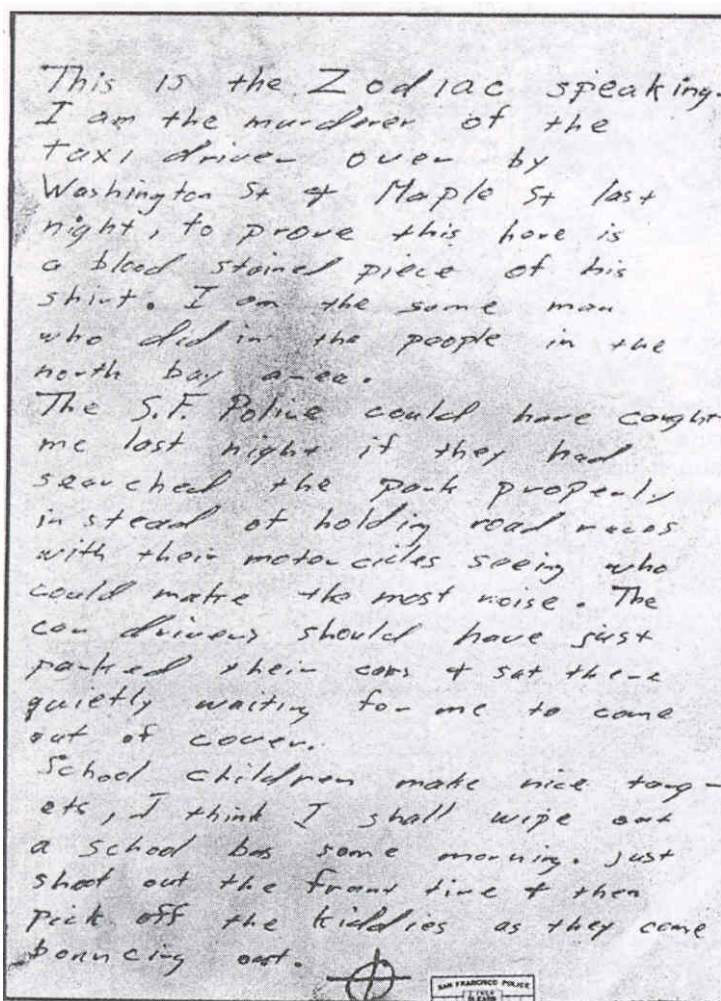 This is the Zodiac speaking.
I am the murderer of the
taxi driver over by
Washington St & Maple St last
night, to prove this here is
a blood stained piece of his
shirt. I am the same man
who did in the people in the
north bay area.
The S.F. Police could have caught
me last night if they had
searched the park properly
in stead of holding road races
with their motorcicles seeing who
could make the most noise. The
car drivers should have just
parked their cars & sat there
quietly waiting for me to come
out of cover.
School children make nice targ-
ets, I think I shall wipe out
a school bus some morning. Just
shoot out the front tire & then
pick off the kiddies as they come
bouncing out.
SAN FRANCISCO POLICE